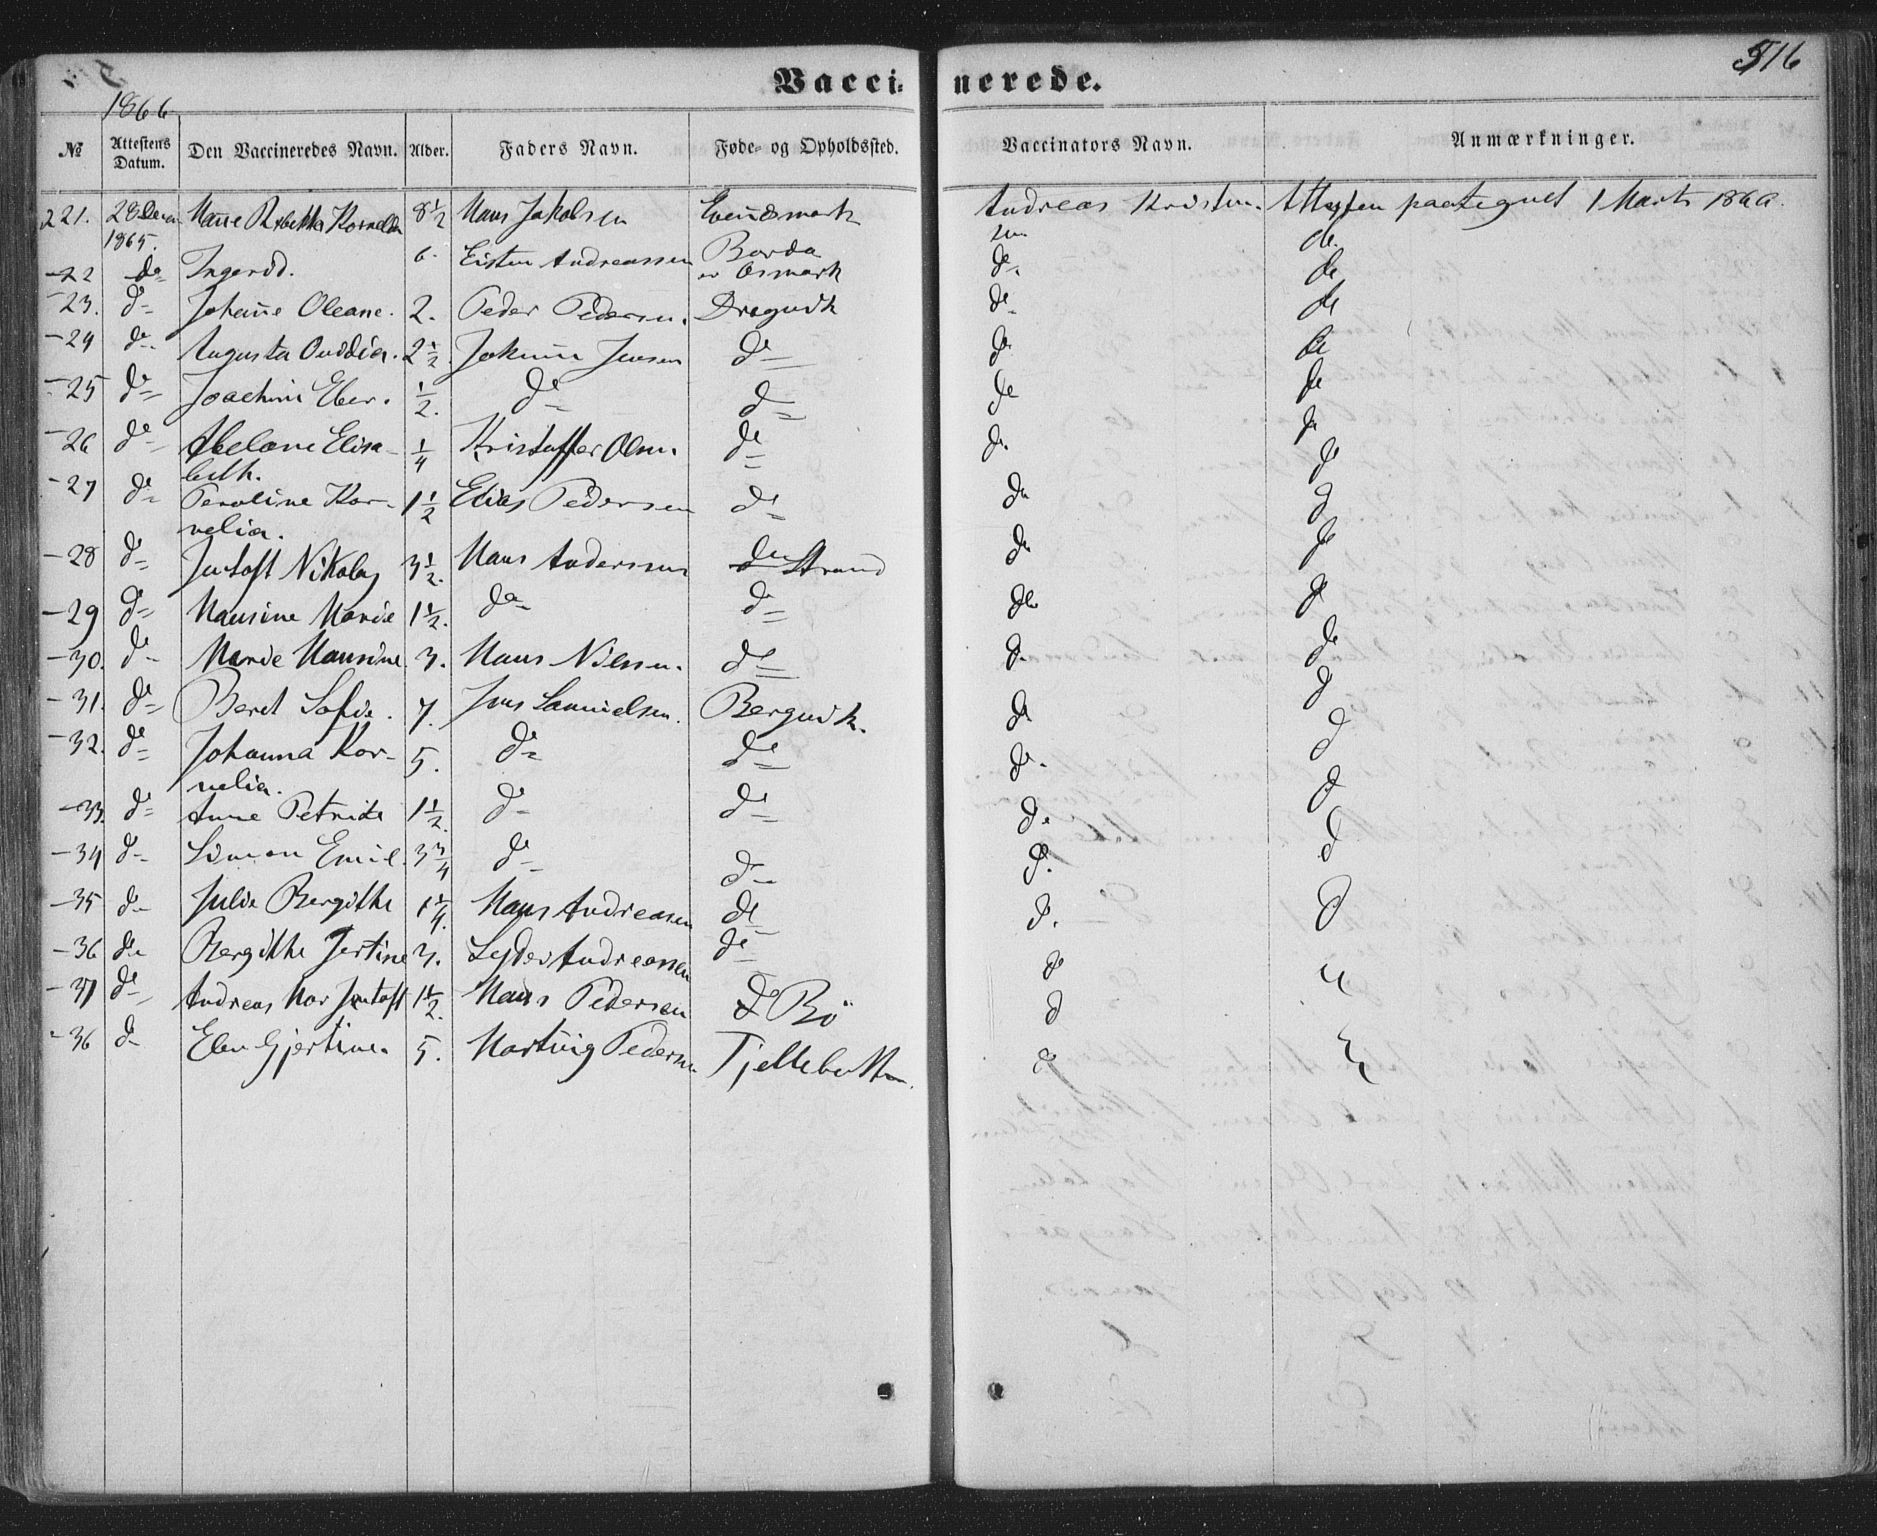 Vaccinerede.
516
1866
№ Attestens Datum. Den Vaccineredes Navn. Alder. Faders Navn. Føde- og Opholdssted. Vaccinators Navn. Anmærkninger.
221. 28 1865. Rebekka 8½ Hans Jakobsen Andreas Kristen- Attesten paategnet 1 Marts
sen
-22 do Ingerid. 6. Eisten Andreassen Osmark do de
-23. do Johanne Oleane. 2. Peder Pedersen. Dragvik do de
-24 do Augusta Ovidia. 2½ Jensen do do de
-25 do Joachim Eber. ½. do do do de
-26 do Abelone Elisa-
beth. ¼ Kristoffer Olsen. do do d
-27 do Peroline Kor-
nelia. 1½ Elias Pedersen do do d
-28 do Jentoft Nikolay 3½. Hans Andersen Strand do d
-29 do Hansine Marie 1½. do do do d
-30. do Marie Hansine 3. Hans Nilssen. do d. d
-31. do Beret Sofie. 7. Jens Samuelsen. Bergvik. do d
-32. do Johanna Kor-
nelia. 5. do do d. d
-33. do Anne Petrikke 1½. do do d. d
-34 do Simon Emil. 3¾ do do d. d
-35 do Julie Bergithe 1¼. Hans Andreasen do d. d
-36 do Bergithe Jertine 3. Andreassen do d
-37 do Andreas Jentoft 1½. Hans Pedersen Bö d
-36 do Elen Gjertine. 5. Hartvig Pedersen d